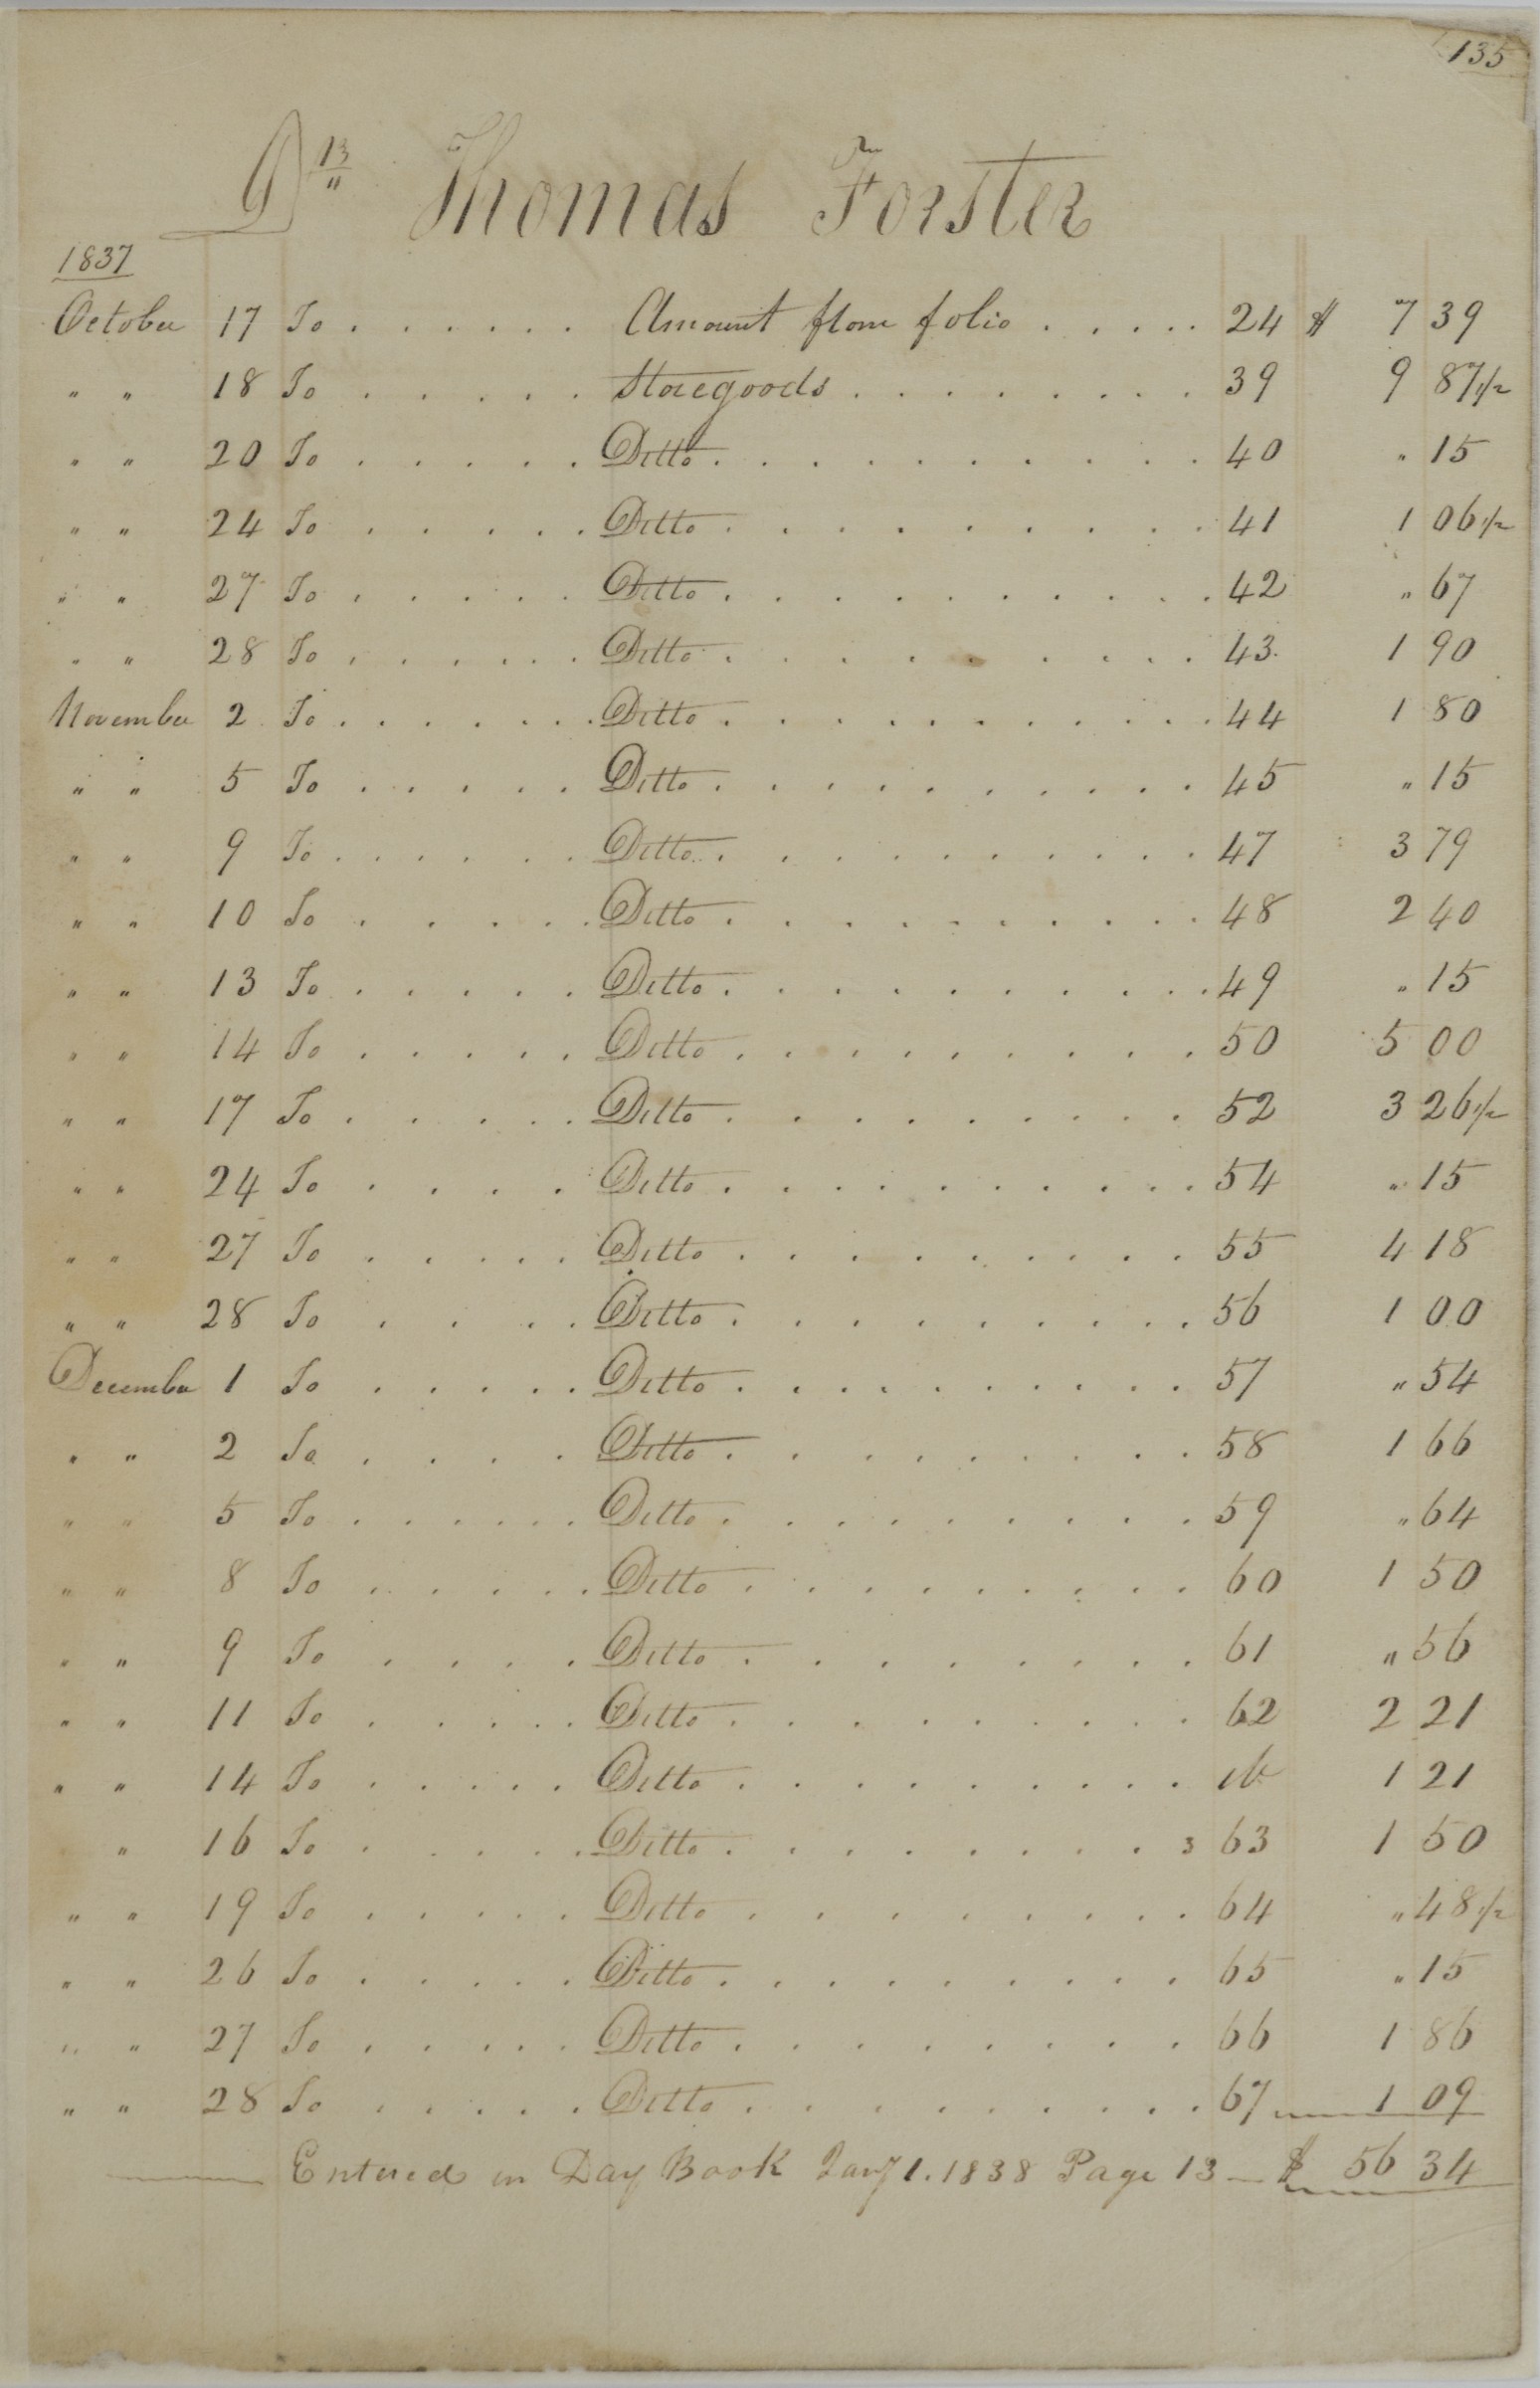 135
Dr 13/" Thomas Forster
1837
October 17 To . . . . . . Amount from folio . . . . . 24 $ 7 39
" " 18 To . . . . . Storegoods . . . . . . . . 39 9 87 1/2
" " 20 To . . . . . Ditto . . . . . . . . . . 40 " 15
" " 24 To . . . . . Ditto . . . . . . . . . 41 1 06 1/2
" " 27 To . . . . . Ditto . . . . . . . . . . 42 " 67
" " 28 To . . . . . . Ditto . . . . . . . . . 43 1 90
November 2 To . . . . . . Ditto . . . . . . . . . . 44 1 80
" " 5 To . . . . . Ditto . . . . . . . . . . 45 " 15
" " 9 To . . . . . . Ditto . . . . . . . . . . 47 3 79
" " 10 To . . . . . Ditto . . . . . . . . . . 48 2 40
" " 13 To . . . . . Ditto . . . . . . . . . . 49 " 15
" " 14 To . . . . . Ditto . . . . . . . . . 50 5 00
" " 17 To . . . . . Ditto . . . . . . . . . 52 3 26 1/2
" " 24 To . . . . Ditto . . . . . . . . . . 54 " 15
" " 27 To . . . . . Ditto . . . . . . . . . 55 4 18
" " 28 To . . . . Ditto . . . . . . . . . 56 1 00
December 1 To . . . . . Ditto . . . . . . . . . 57 " 54
" " 2 To . . . . Ditto . . . . . . . . . 58 1 66
" " 5 To . . . . . . Ditto . . . . . . . . . 59 " 64
" " 8 To . . . . . Ditto . . . . . . . . . 60 1 50
" " 9 To . . . . Ditto . . . . . . . . . 61 " 56
" " 11 To . . . . . Ditto . . . . . . . . . 62 2 21
" " 14 To . . . . . Ditto . . . . . . . . . ib 1 21
" 16 To . . . . . Ditto . . . . . . . . 3 63 1 50
" " 19 To . . . . . Ditto . . . . . . . . 64 " 48 1/2
" " 26 To . . . . . Ditto . . . . . . . . . 65 " 15
" " 27 To . . . . . Ditto . . . . . . . . 66 1 86
" " 28 To . . . . . Ditto . . . . . . . . . 67 1 09
Entered in Day Book Jany 1. 1838 Page 13 — $ 56 34